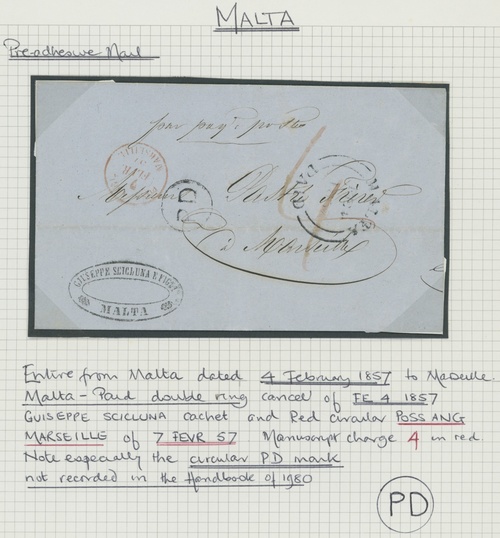 MALTA
Pre-adhesive Mail
PD
à Marseille
GIUSEPPE SCICLUNA E FIGLI
MALTA
Entire from Malta dated 4 February 1857 to Marseille.
Malta - Paid double ring cancel of FE 4 1857
GUISEPPE SCICLUNA cachet and Red circular POSS ANG
MARSEILLE of 7 FEVR 57 Manuscript charge 4 in red
Note especially the circular PD mark
not recorded in the Handbook of 1980
PD